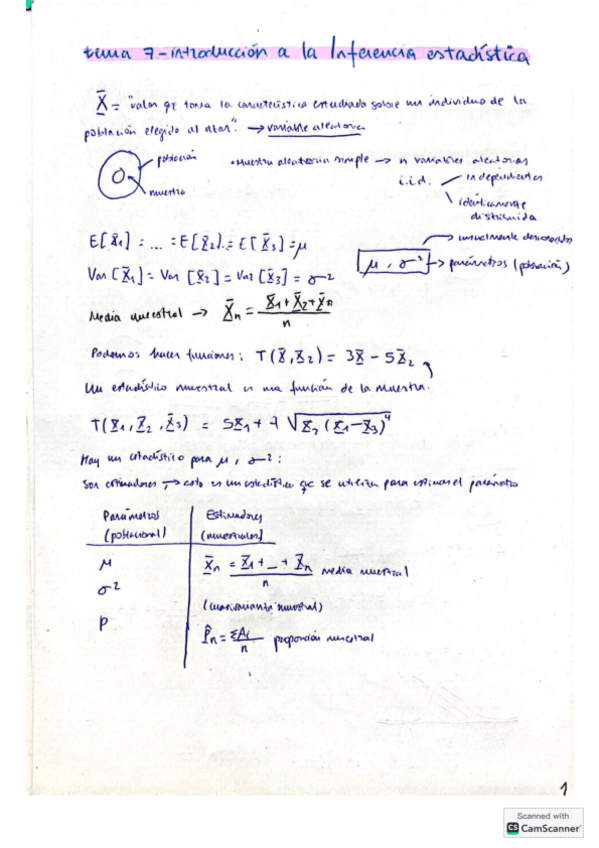 tema 7 - introducción a la Inferencia estadística
X = "valor qe toma la característica estudiada sobre un individuo de la
población elegido al azar". → variable aleatoria
población
muestra
• Muestra aleatoria simple → n variables aleatorias
i.i.d.
independientes
idénticamente
distribuida
E[X1] = ... = E[X2] = E[X3] = μ
Var[X1] = Var[X2] = Var[X3] = σ²
usualmente desconocidos
μ, σ² → parámetros (población)
Media muestral → X̄n = X1+X2+Xn / n
Podemos hacer funciones: T(X, X2) = 3X - 5X2
Un estadístico muestral es una función de la muestra.
T(X1, X2, X3) = 5X1 + √X2 (X1-X3)⁴
Hay un estadístico para μ, σ²:
Son estimadores → esto es un estadístico qe se utiliza para estimar el parámetro
Parámetros
(poblacional)
Estimadores
(muestrales)
μ
X̄n = X1 + ... + Xn / n media muestral
σ²
(cuasivarianza muestral)
p
P̂n = ΣAi / n proporción muestral
1
Scanned with
CS CamScanner